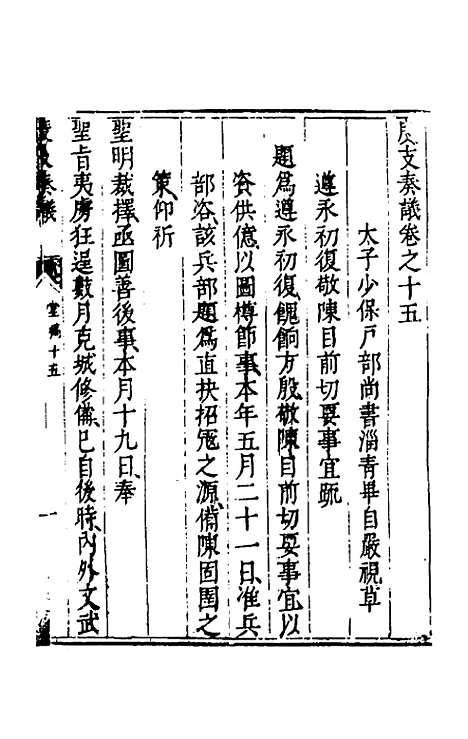 度支奏議卷之十五
太子少保戶部尚書淄青畢自嚴視草
遵永初復敬陳目前切要事宜疏
題為遵永初復餽餉方殷敬陳目前切要事宜以
咨供億以圖樽節事本年五月二十一日准兵
部咨該兵部題為直抉招寇之源備陳固圉之
策仰祈
聖明裁擇亟圖善後事本月十九日奉
聖旨夷虜狂逞數月克城修備已自後時內外文武
度支奏議
堂稿十五
一